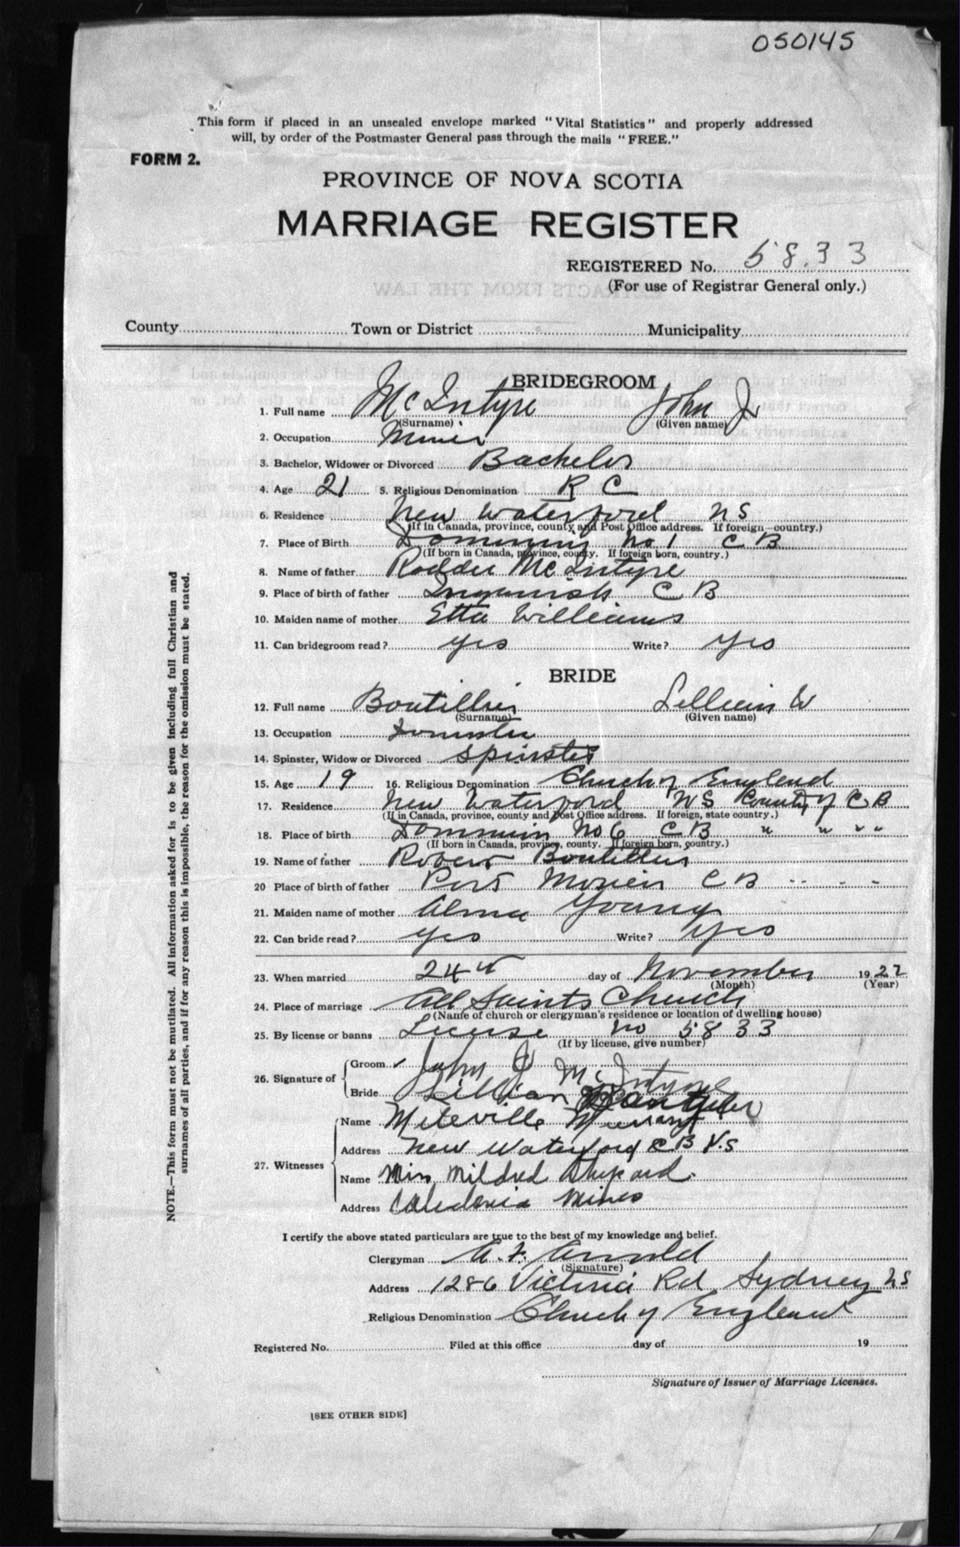 050145
This form if placed in an unsealed envelope marked "Vital Statistics" and properly addressed
will, by order of the Postmaster General pass through the mails "FREE."
FORM 2.
PROVINCE OF NOVA SCOTIA
MARRIAGE REGISTER
REGISTERED No. 5833
(For use of Registrar General only.)
County Town or District Municipality
BRIDEGROOM
1. Full name McIntyre John J
(Surname) (Given name)
2. Occupation Miner
3. Bachelor, Widower or Divorced Bachelor
4. Age 21 5. Religious Denomination R C
6. Residence New Waterford NS
(If in Canada, province, county and Post Office address. If foreign—country.)
7. Place of Birth No 1 C B
(If born in Canada, province, county. If foreign born, country.)
8. Name of father McIntyre
9. Place of birth of father Ingonish C B
10. Maiden name of mother Etta Williams
11. Can bridegroom read? yes Write? yes
BRIDE
12. Full name Boutillier Lillian W
(Surname) (Given name)
13. Occupation
14. Spinster, Widow or Divorced Spinster
15. Age 19 16. Religious Denomination Church of England
17. Residence New Waterford NS County of C B
(If in Canada, province, county and Post Office address. If foreign, state country.)
18. Place of birth No 6 C B " " " "
(If born in Canada, province, county. If foreign born, country.)
19. Name of father Robert Boutillier
20 Place of birth of father Port Morien C B
21. Maiden name of mother Alma Young
22. Can bride read? yes Write? yes
23. When married 24th day of November 1922
(Month) (Year)
24. Place of marriage All Saints Church
(Name of church or clergyman's residence or location of dwelling house)
25. By license or banns License no 5833
(If by license, give number)
26. Signature of
Groom John J McIntyre
Bride Lillian
27. Witnesses
Name Murrant
Address New Waterford C B N.S
Name Miss Mildred Shepard
Address Caledonia Mines
I certify the above stated particulars are true to the best of my knowledge and belief.
Clergyman A. F. Arnold
(Signature)
Address 1286 Victoria Rd Sydney NS
Religious Denomination Church of England
Registered No. Filed at this office day of 19
Signature of Issuer of Marriage Licenses.
[SEE OTHER SIDE]
NOTE.—This form must not be mutilated. All information asked for is to be given including full Christian and
surnames of all parties, and if for any reason this is impossible, the reason for the omission must be stated.